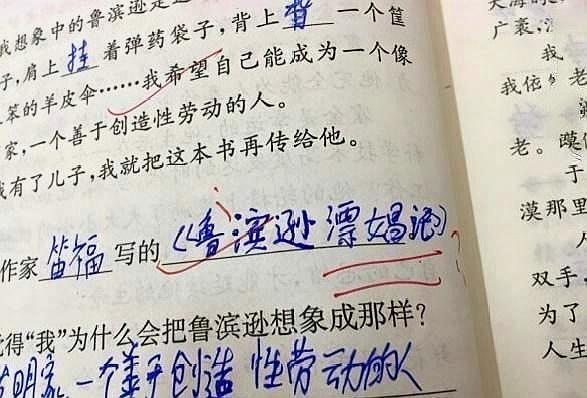 我想象中的鲁滨逊是这
子,肩上挂着弹药袋子,背上背一个筐
笨的羊皮伞……我希望自己能成为一个像
家,一个善于创造性劳动的人。
我有了儿子,我就把这本书再传给他。
作家笛福写的《鲁滨逊漂娼记》
觉得“我”为什么会把鲁滨逊想象成那样?
发明家,一个善于创造性劳动的人
广袤,
我
我依
老。
于
漠那里
双手,
为了
人生